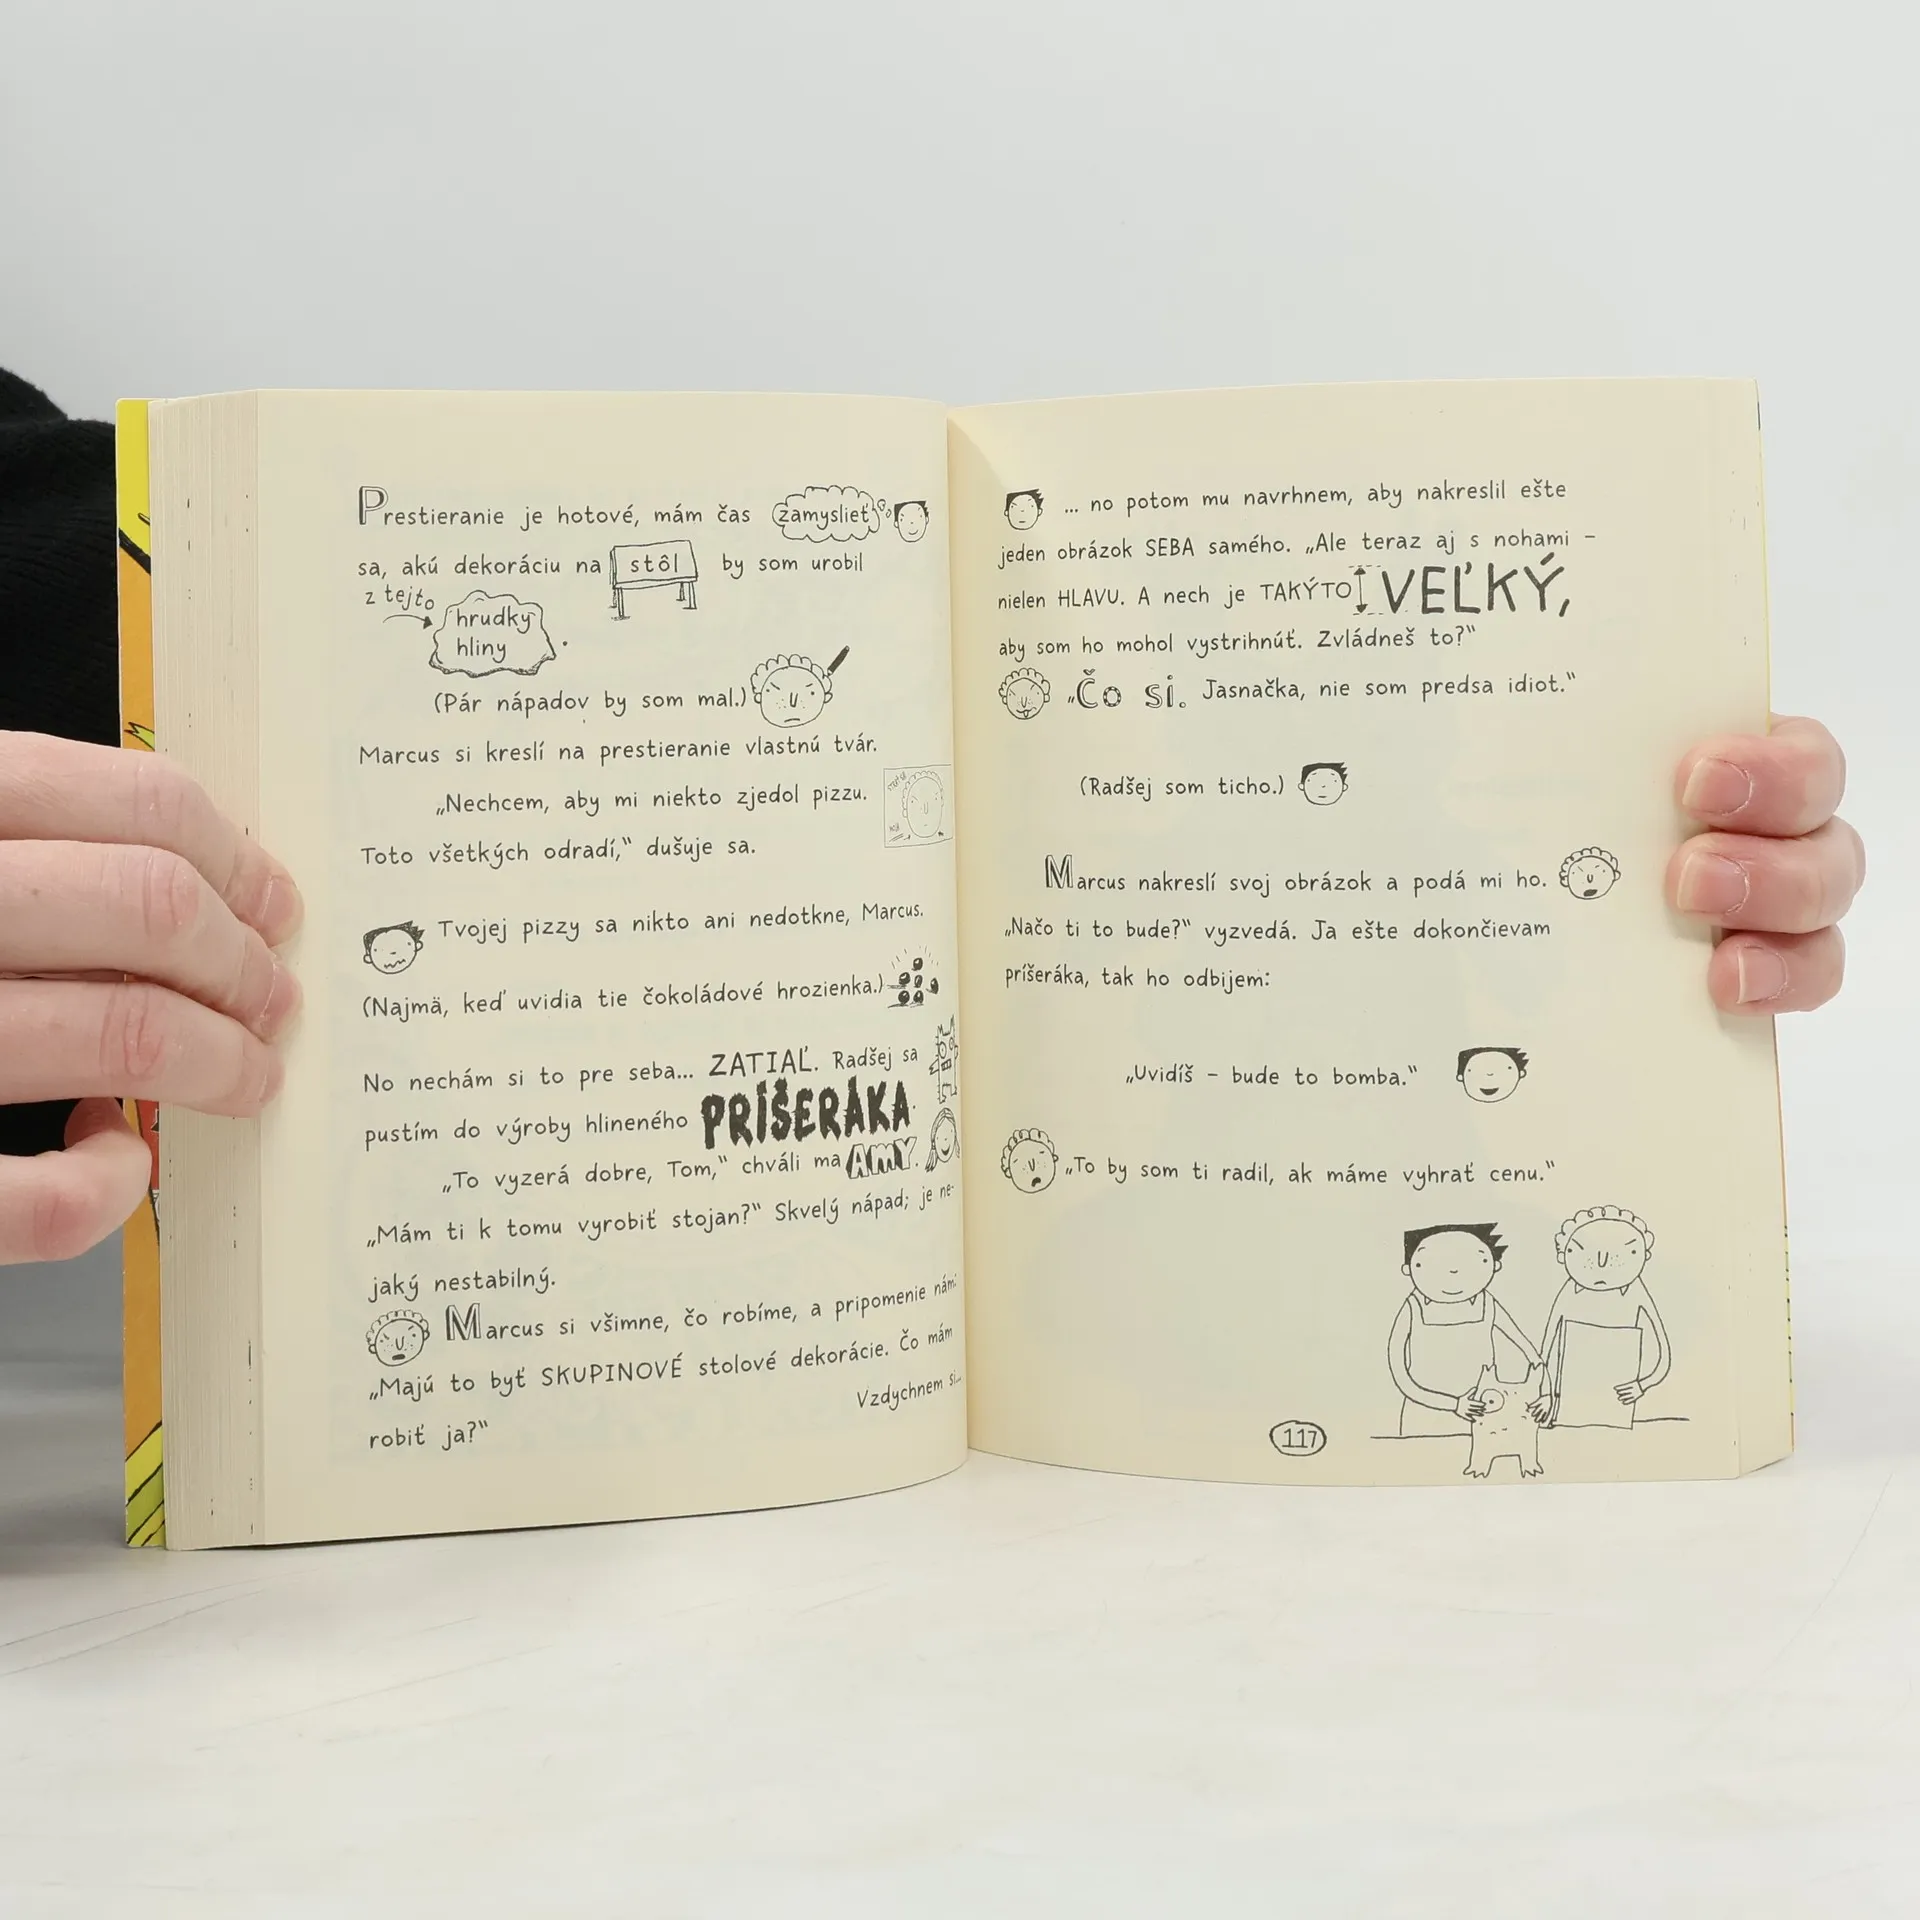 Prestieranie je hotové, mám čas zamyslieť
sa, akú dekoráciu na stôl by som urobil
z tejto
hrudky
hliny.
(Pár nápadov by som mal.)
Marcus si kreslí na prestieranie vlastnú tvár.
„Nechcem, aby mi niekto zjedol pizzu.
Toto všetkých odradí,“ dušuje sa.
Tvojej pizzy sa nikto ani nedotkne, Marcus.
(Najmä, keď uvidia tie čokoládové hrozienka.)
No nechám si to pre seba... ZATIAĽ. Radšej sa
pustím do výroby hlineného PRÍŠERÁKA.
„To vyzerá dobre, Tom,“ chváli ma AMY.
„Mám ti k tomu vyrobiť stojan?“ Skvelý nápad; je ne-
jaký nestabilný.
Marcus si všimne, čo robíme, a pripomenie nám:
„Majú to byť SKUPINOVÉ stolové dekorácie. Čo mám
robiť ja?“
Vzdychnem si...
... no potom mu navrhnem, aby nakreslil ešte
jeden obrázok SEBA samého. „Ale teraz aj s nohami –
nielen HLAVU. A nech je TAKÝTO VEĽKÝ,
aby som ho mohol vystrihnúť. Zvládneš to?“
„Čo si. Jasnačka, nie som predsa idiot.“
(Radšej som ticho.)
Marcus nakreslí svoj obrázok a podá mi ho.
„Načo ti to bude?“ vyzvedá. Ja ešte dokončievam
príšeráka, tak ho odbijem:
„Uvidíš – bude to bomba.“
„To by som ti radil, ak máme vyhrať cenu.“
117